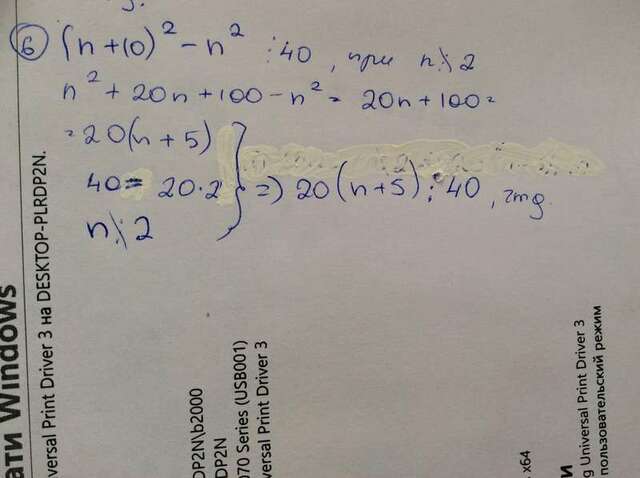 ⑥ (n+10)² - n² ⋮ 40, при n \ 2
n² + 20n + 100 - n² = 20n + 100 =
= 20(n + 5)
40 = 20·2 } => 20(n+5) ⋮ 40, чтд.
n \ 2
ати Windows
versal Print Driver 3 на DESKTOP-PLRDP2N.
DP2N\b2000
DP2N
070 Series (USB001)
versal Print Driver 3
x64
И
g Universal Print Driver 3
пользовательский режим